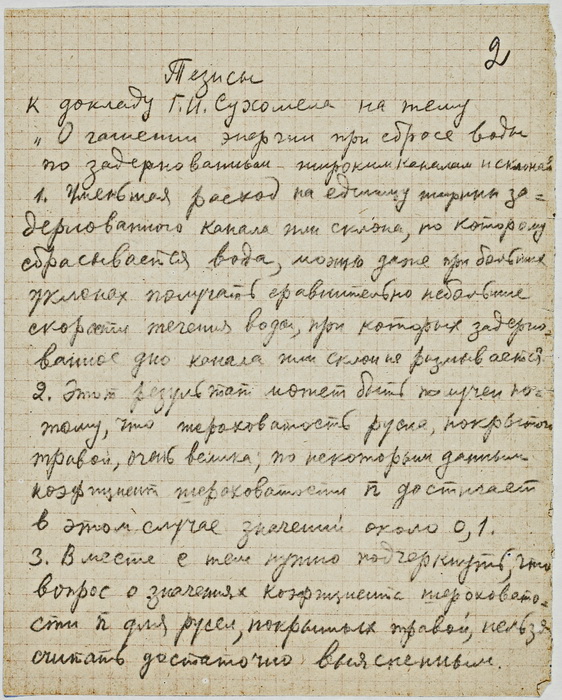 2
Тезисы
к докладу Г.И. Сухомела на тему
„О гашении энергии при сбросе воды
по задернованным широким каналам и склонам"
1. Уменьшая расход на единицу ширины за=
дернованного канала или склона, по которому
сбрасывается вода, можно даже при больших
уклонах получать сравнительно небольшие
скорости течения воды, при которых задерно-
ванное дно канала или склон не размывается.
2. Этот результат может быть получен по-
тому, что шероховатость русла, покрытого
травой, очень велика; по некоторым данным
коэфициент шероховатости n достигает
в этом случае значений около 0,1.
3. Вместе с тем нужно подчеркнуть, что
вопрос о значениях коэфициента шероховато-
сти n для русел, покрытых травой, нельзя
считать достаточно выясненным.